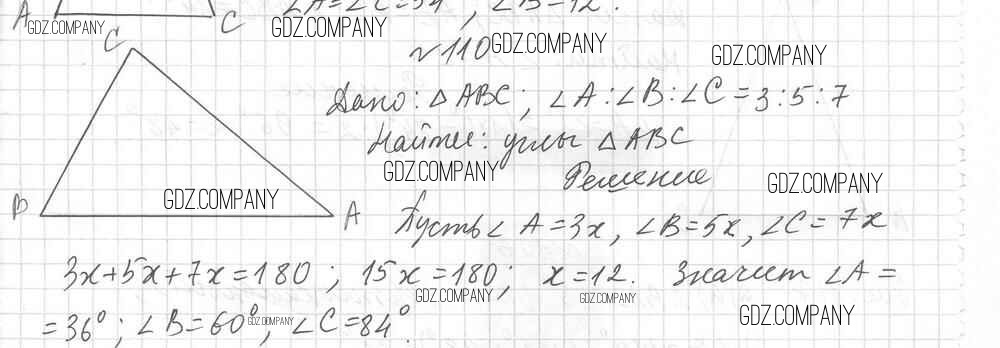 ∠A=∠C=54°, ∠B=72°.
A C
GDZ.COMPANY GDZ.COMPANY
C
№110 GDZ.COMPANY
GDZ.COMPANY
Дано: △ABC; ∠A:∠B:∠C=3:5:7
Найти: углы △ABC
GDZ.COMPANY
Решение
GDZ.COMPANY GDZ.COMPANY
B A
Пусть ∠A=3x, ∠B=5x, ∠C=7x
3x+5x+7x=180; 15x=180; x=12. Значит ∠A=
GDZ.COMPANY GDZ.COMPANY
=36°; ∠B=60°; ∠C=84°.
GDZ.COMPANY GDZ.COMPANY